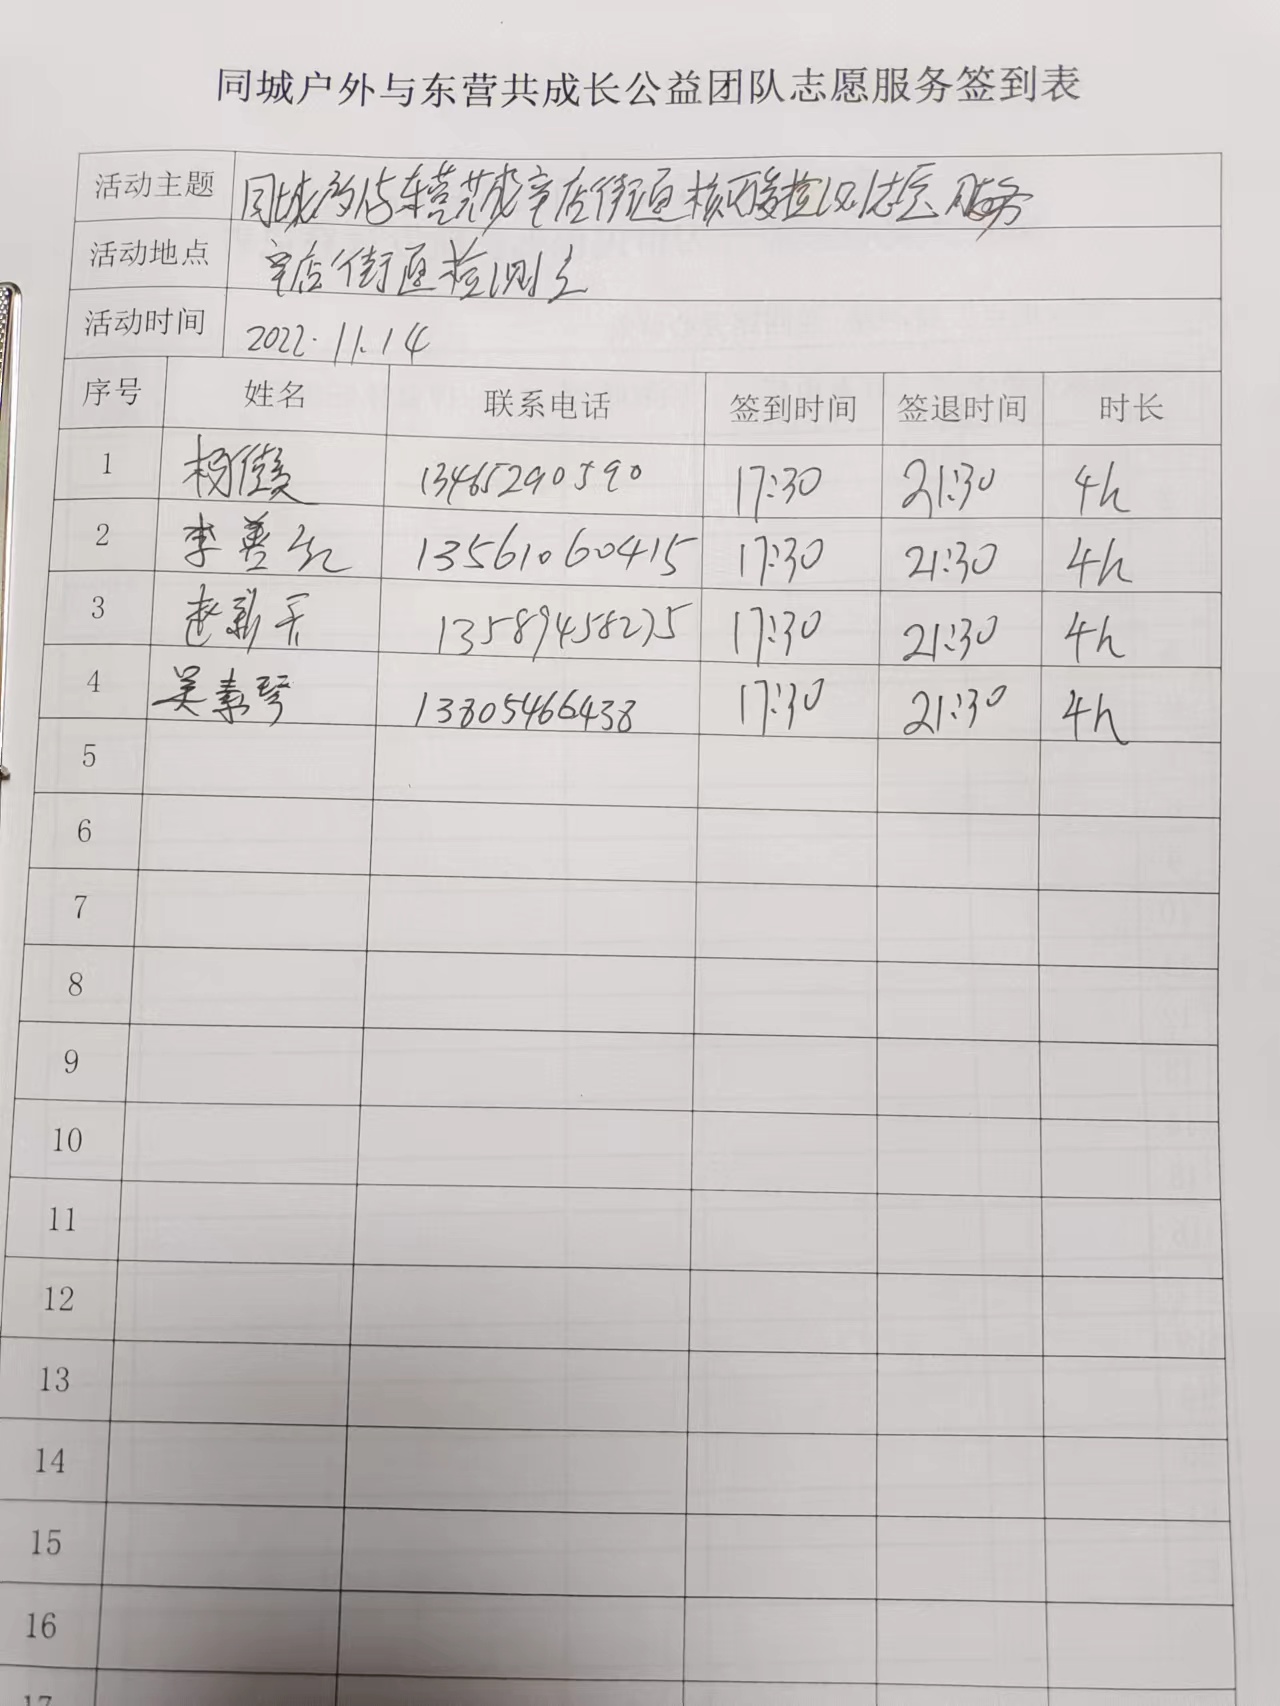 同城户外与东营共成长公益团队志愿服务签到表
活动主题 同城户外与东营共成长 街道核酸检测志愿服务
活动地点 街道检测点
活动时间 2022.11.14
序号 姓名 联系电话 签到时间 签退时间 时长
1 杨 13465290590 17:30 21:30 4h
2 李善 13561060415 17:30 21:30 4h
3 赵新 13589458275 17:30 21:30 4h
4 吴素琴 13805466438 17:30 21:30 4h
5
6
7
8
9
10
11
12
13
14
15
16
17